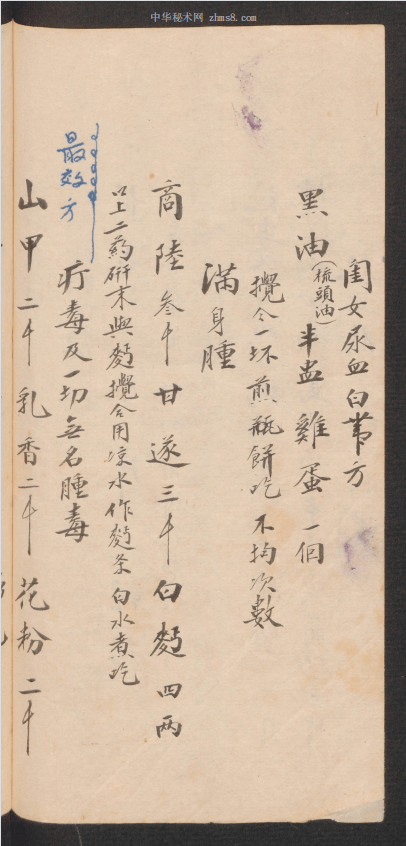 中华秘术网 zhms8.com
閨女尿血白带方
黑油(梳頭油)半盅雞蛋一個
攪合一坏煎瓶餅吃不拘次數
滿身腫
商陸叁千甘遂三千白麪四两
以上二药研末與麪攪合用凉水作麪条白水煮吃
最效方
疔毒及一切無名腫毒
山甲二千乳香二千花粉二千